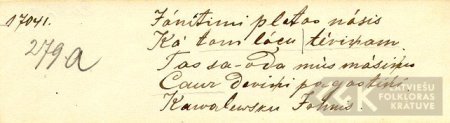 17041.
279a
Jānitimi pletas nāsis
Kā tam lāču tēviņam.
Tas sa-oda mūs māsiņu
Caur deviņi pagastiņi
Kawalewsku Johnis.
LATVIEŠU
FOLKLORAS
KRĀTUVE